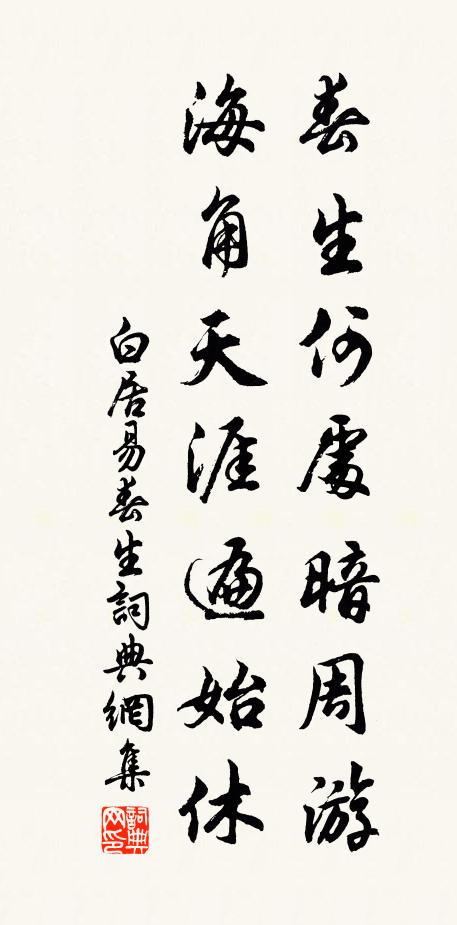 春生何處暗周游
海角天涯遍始休
白居易春生詞典網集
詞典网印